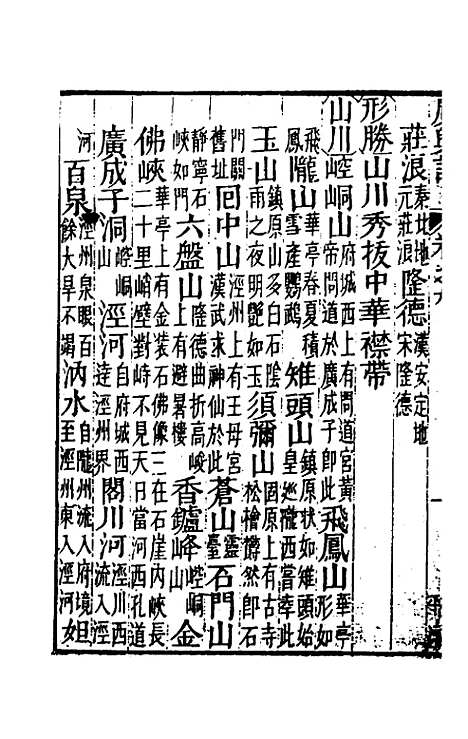 莊浪秦北地地元莊浪隆德漢安定地宋隆德
形勝山川秀抜中華襟帶
山川崆峒山府城西上有問道宮黃帝問道於廣成子即此飛鳳山華亭形如
飛鳳隴山華亭春夏積雪產鸚鵡雉頭山鎮原狀如雉頭始皇巡隴西嘗幸此
玉山鎮原山多白石陰雨之夜明艷如玉須彌山固原上有古寺松檜欝然即石
門關舊址囘中山涇州上有王母宮漢武來神仙於此蒼山靈臺石門山
靜寧石峽如門六盤山隆德曲折高峻上有避暑樓香鑪峰崆峒山金
佛峽華亭上有金裝石佛像三在石崖内峽長二十里峭壁對峙不見天日當河西孔道
廣成子洞崆峒山涇河自府城西逹涇州界閣川河涇川西流入涇
河百泉涇州泉眼百餘大旱不竭汭水自隴州流入府境但至涇州東入涇河女